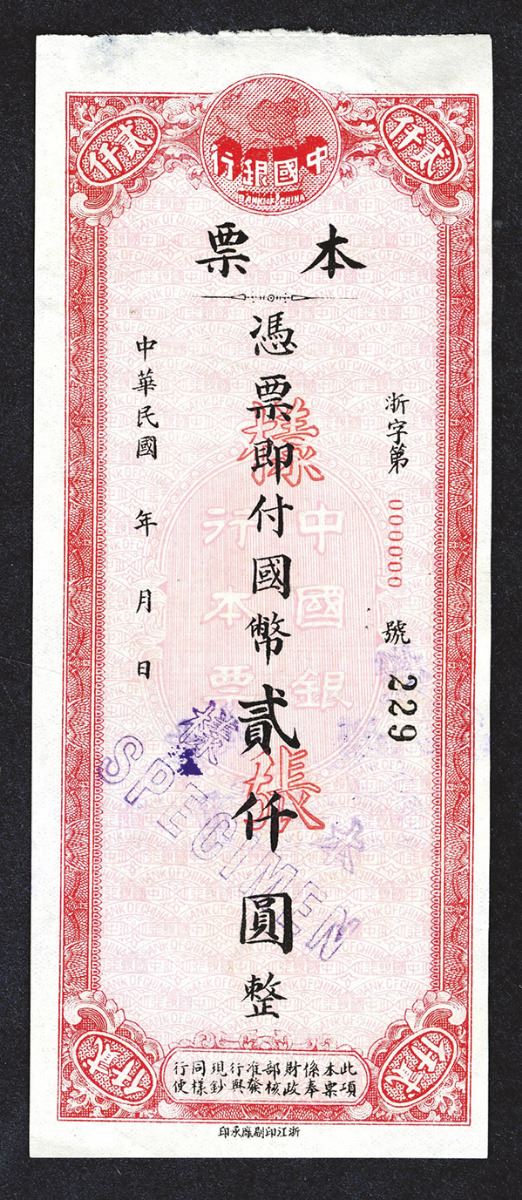 貳仟
貳仟
中國銀行
BANK OF CHINA
本票
浙字第 000000 號
229
憑票即付國幣貳仟圓整
中華民國 年 月 日
樣張
中國銀
行本票
SPECIMEN
貳仟
貳仟
此項本票係奉財政部核准發行與現鈔同樣行使
浙江印刷廠承印